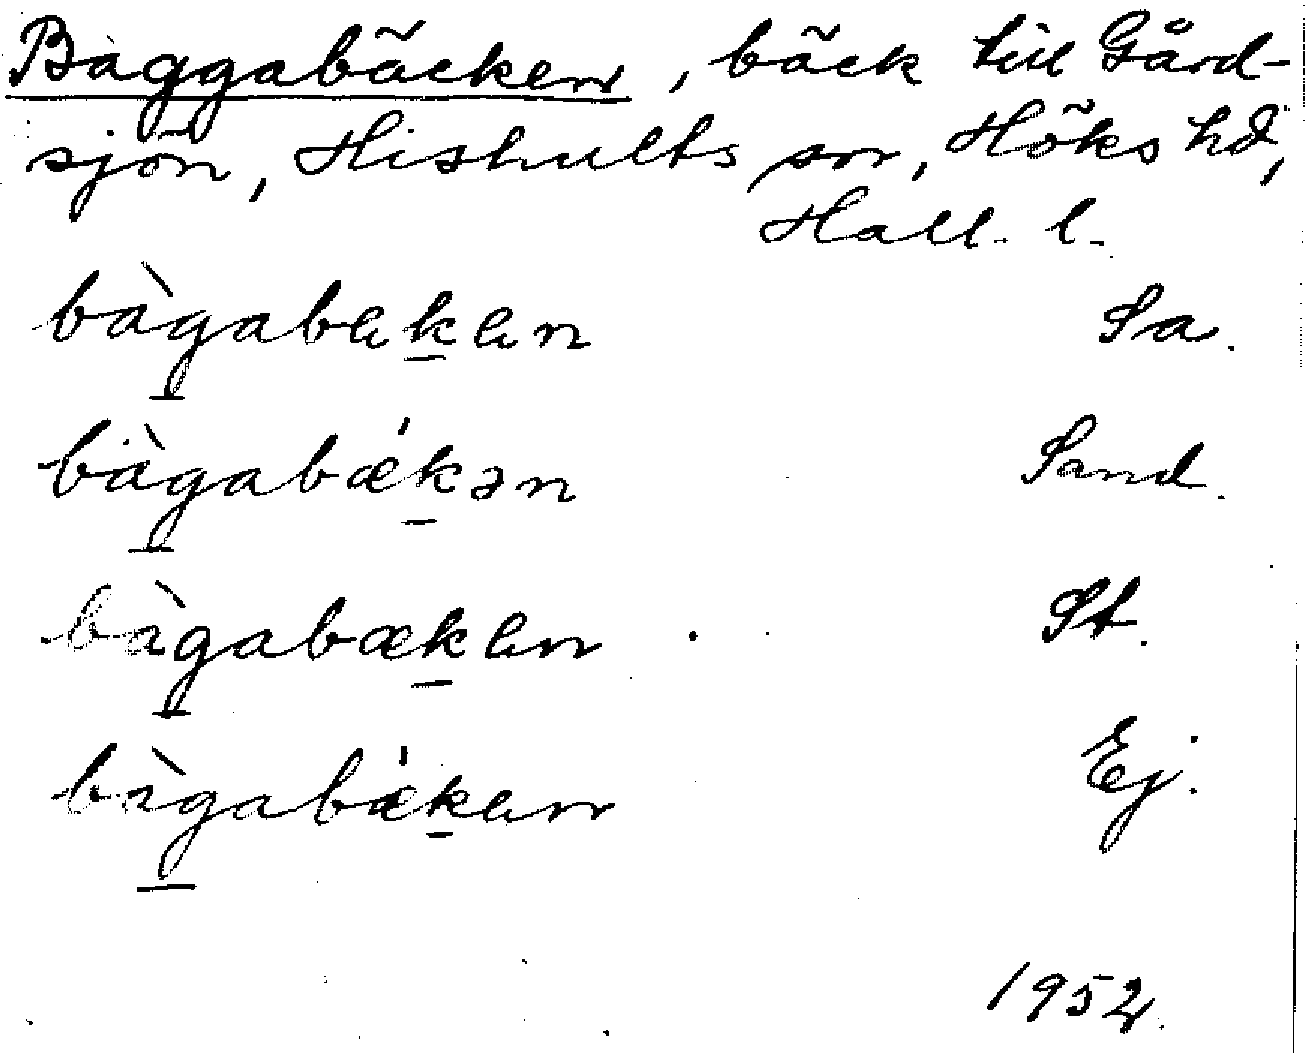 Baggabäcken, bäck till Gård-
sjön, Hishults sn, Höks hd,
Hall. l.
bàgabeken Sa.
bàgabǽkən Sand.
bàgabæken St.
bàgabǽken Ej.
1952.